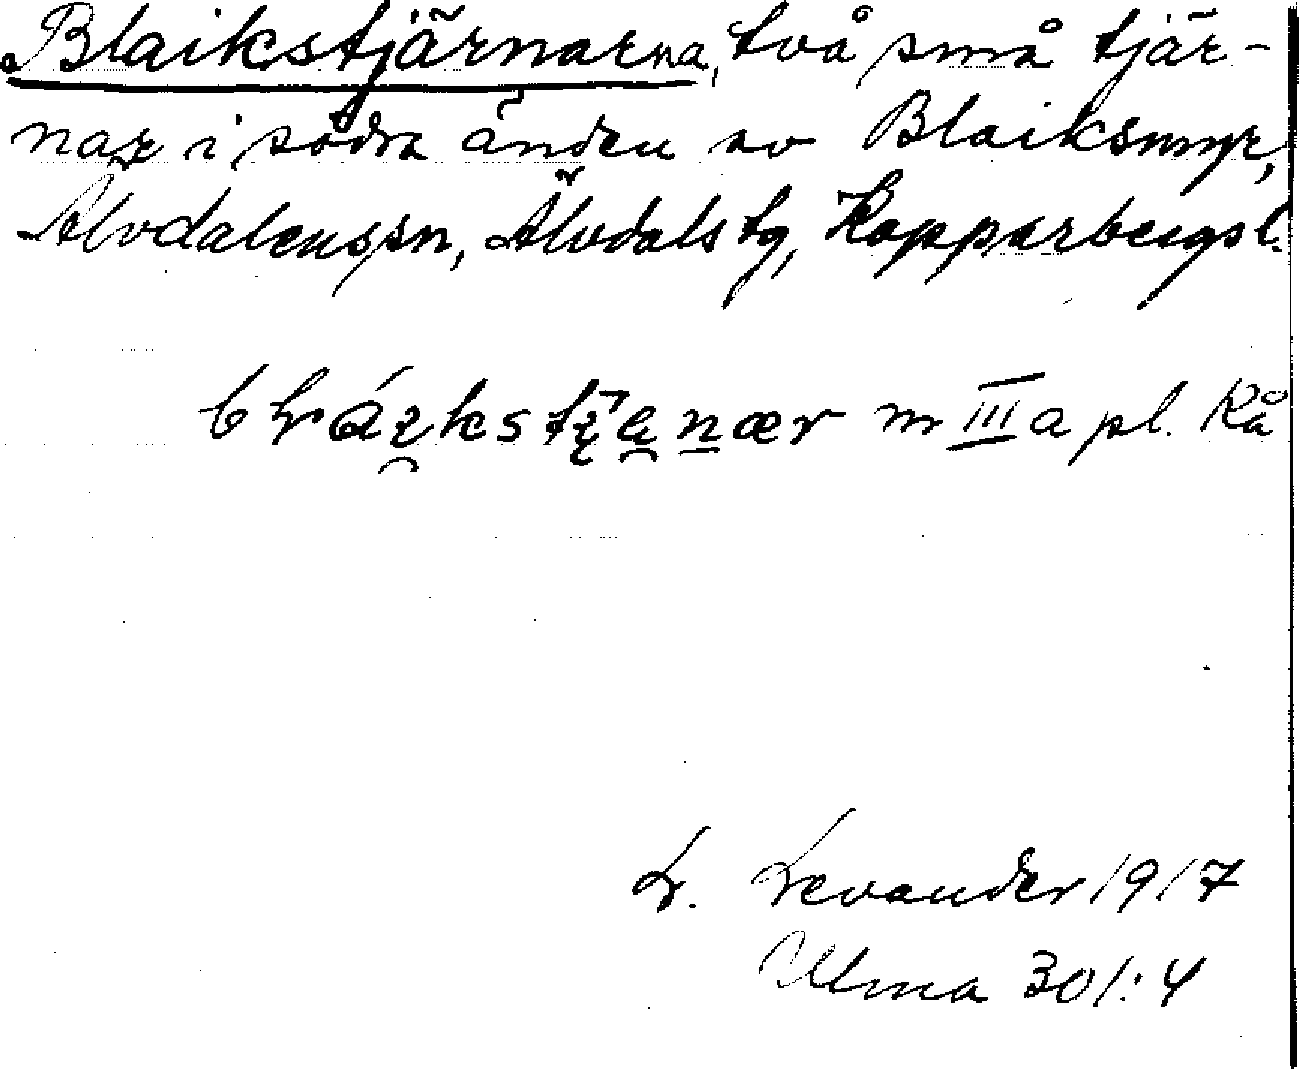 Blaikstjärnarna, två små tjär-
nar i södra änden av Blaiksmyr,
Älvdalens sn, Älvdals tg, Kopparbergs l.
m III a pl. Kå
L. Levander 1917
Ulma 301:4